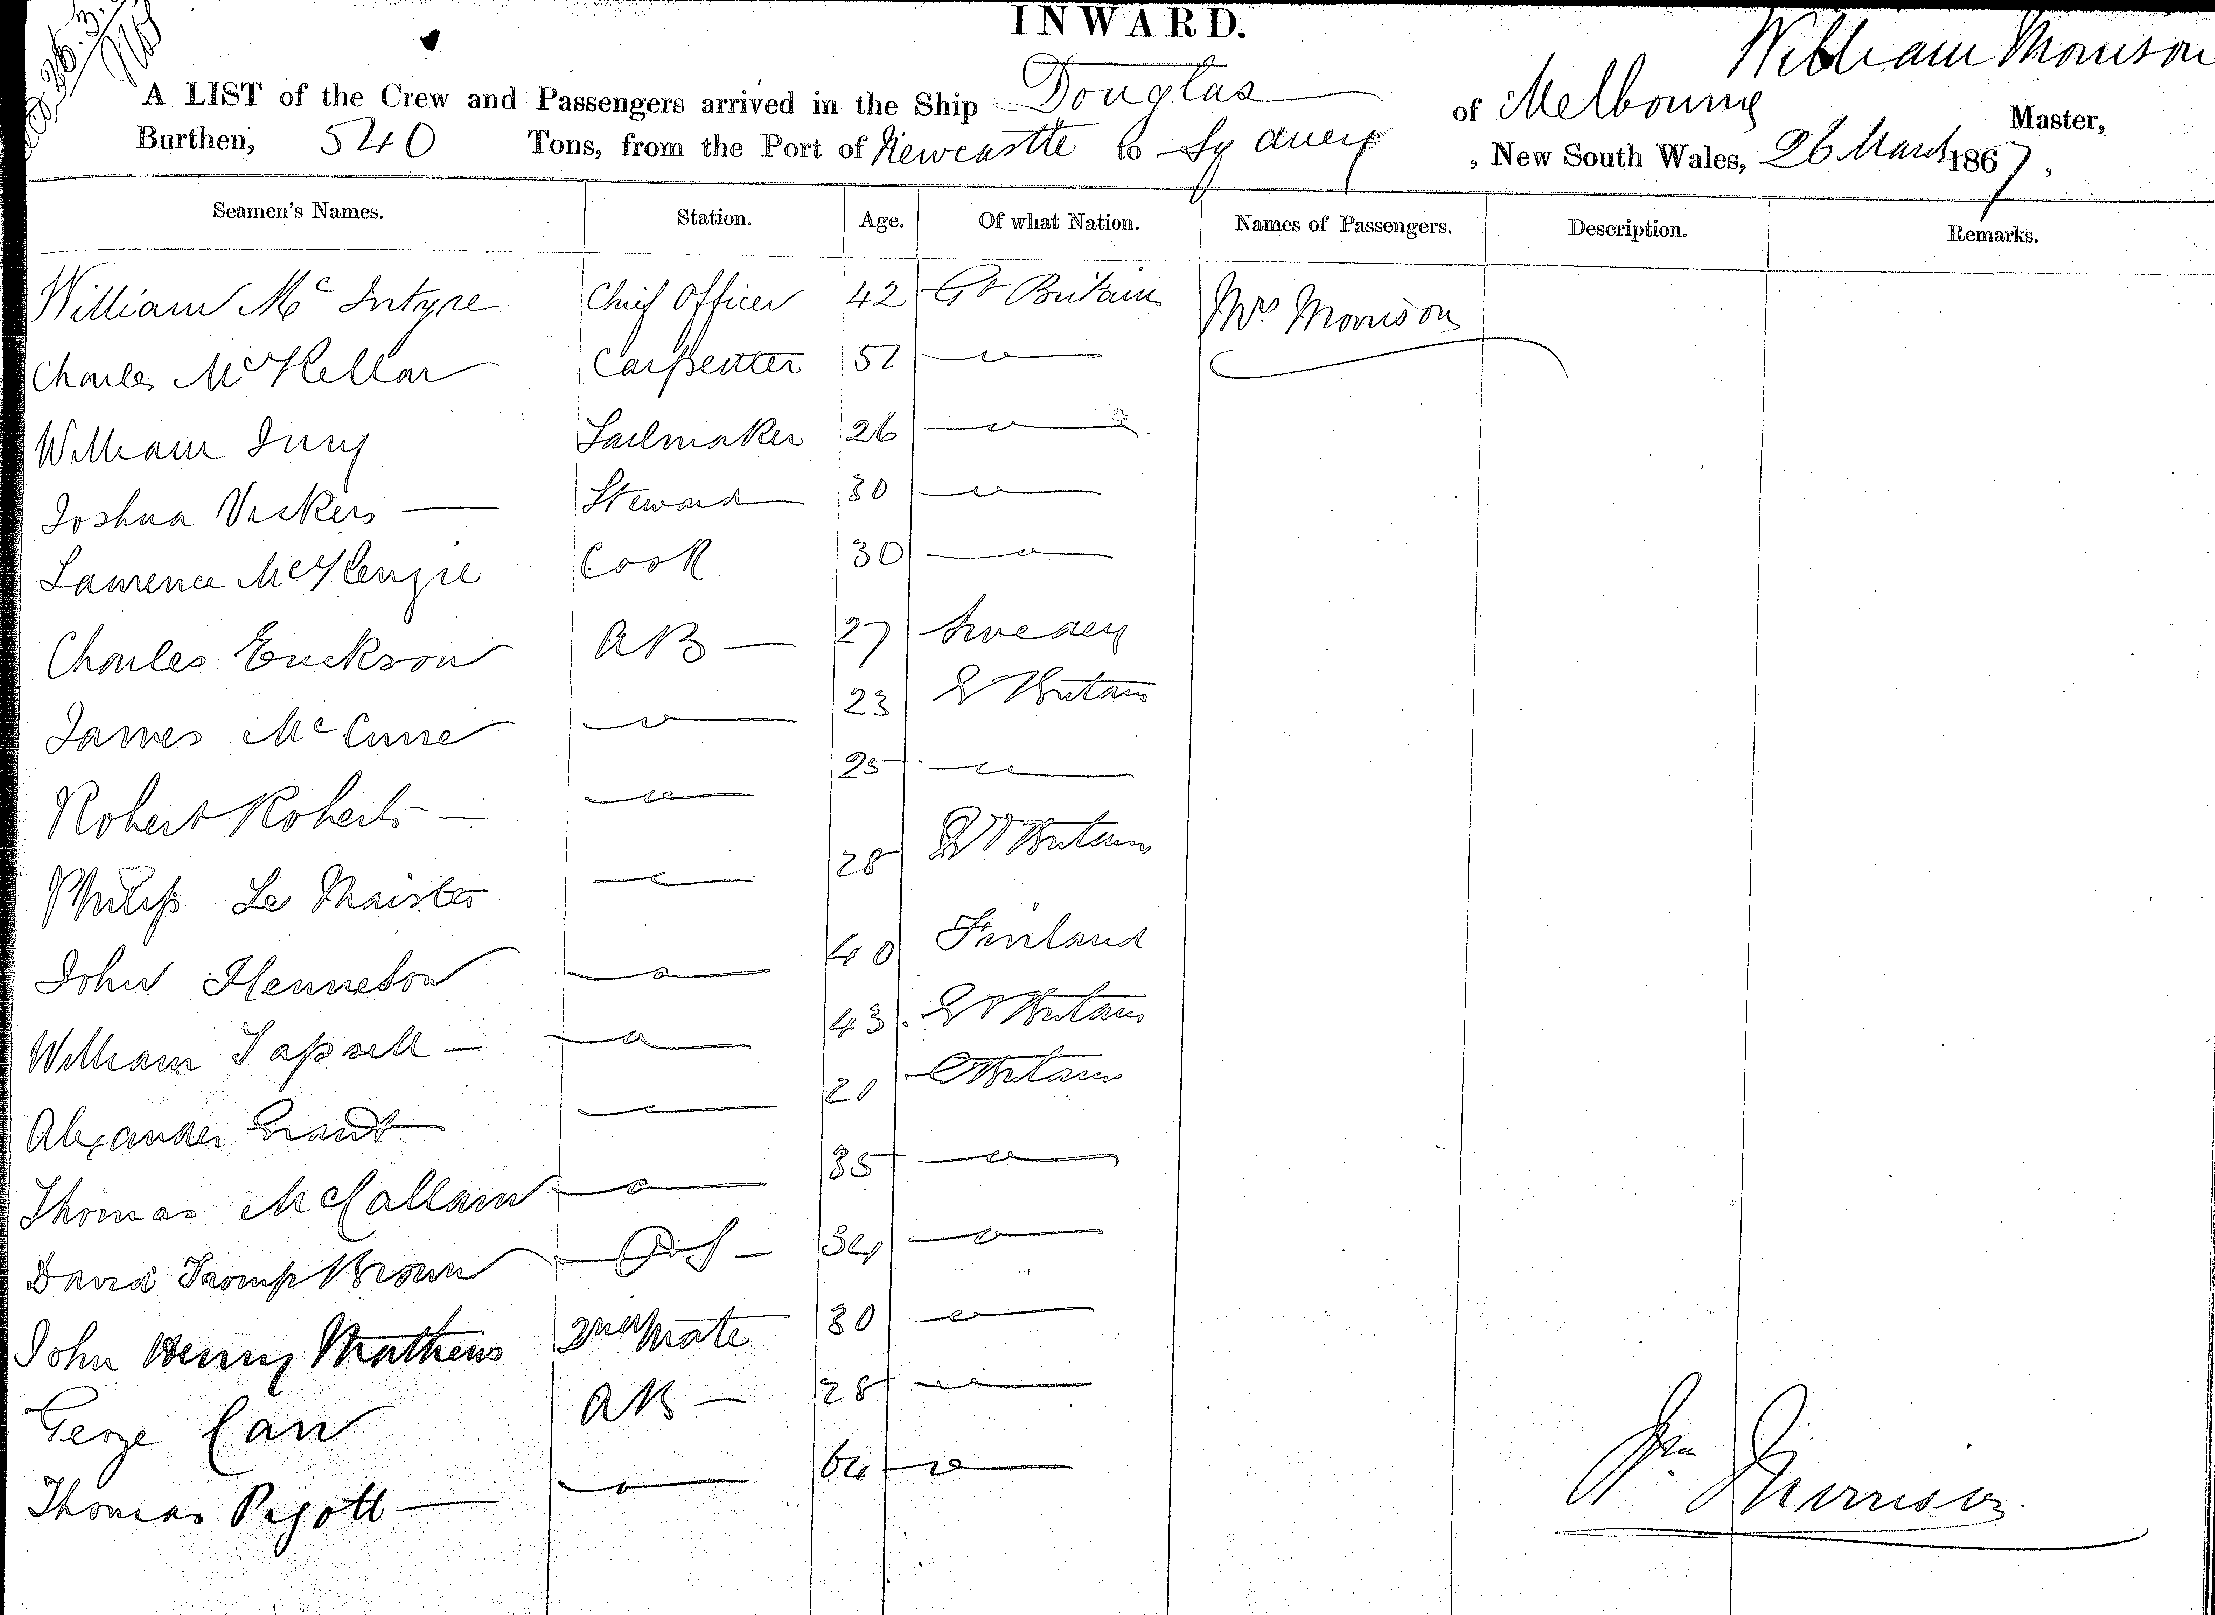 INWARD.
William Morrison
A LIST of the Crew and Passengers arrived in the Ship Douglas of Melbourne Master,
Burthen, 540 Tons, from the Port of Newcastle to Sydney, New South Wales, 26 March 1867.
Seamen's Names. Station. Age. Of what Nation. Names of Passengers. Description. Remarks.
William Mc Intyre Chief Officer 42 Gt Britain Mrs Morrison
Charles McKellar Carpenter 51 — " —
William Jury Sailmaker 26 — " —
Joshua Vickers — Steward 30 — " —
Laurence McKenzie Cook 30 — " —
Charles Erickson AB — 27 Sweden
James McCune — " — 23 Gt Britain
Robert Roberts — — " — 25 — " —
Philip Le Maister — " — 28 Gt Britain
John Henneson — " — 40 Finland
William Tapsell — — " — 43 Gt Britain
Alexander Grant — " — 20 Britain
Thomas McCallam — " — 35 — " —
David Tromp Brown OS — 34 — " —
John Henry Mathews 2nd Mate 30 — " —
George Carr AB — 28 — " —
Thomas Pigott — — " — 64 — " —
Wm Morrison